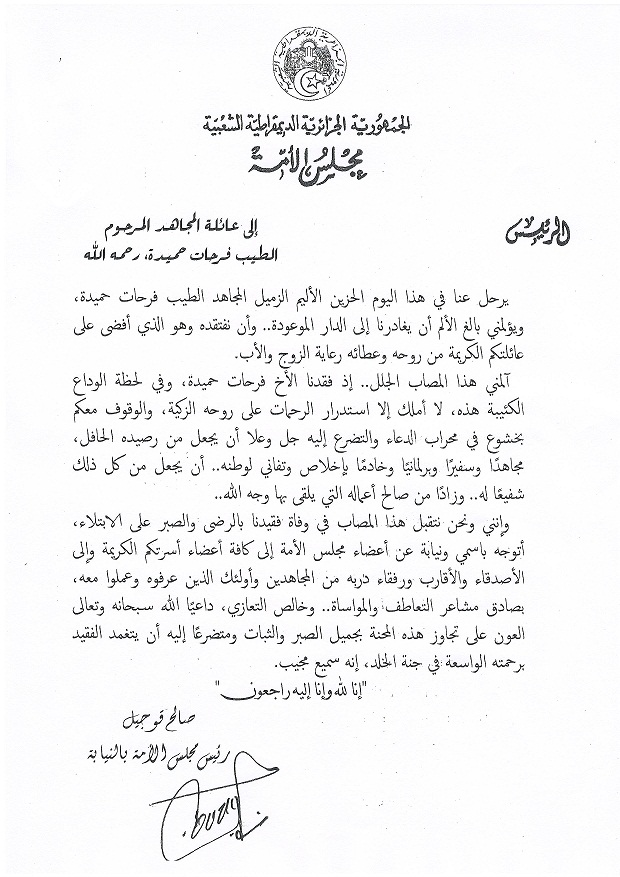 الجمهورية الجزائرية الديمقراطية الشعبية
مجلس الأمة
الرئيس
إلى عائلة المجاهد المرحوم
الطيب فرحات حميدة، رحمه الله
يرحل عنا في هذا اليوم الحزين الأليم الزميل المجاهد الطيب فرحات حميدة،
ويؤلمني بالغ الألم أن يغادرنا إلى الدار الموعودة.. وأن نفتقده وهو الذي أفضى على
عائلتكم الكريمة من روحه وعطائه رعاية الزوج والأب.
آلمني هذا المصاب الجلل.. إذ فقدنا الأخ فرحات حميدة، وفي لحظة الوداع
الكئيبة هذه، لا أملك إلا استدرار الرحمات على روحه الزكية، والوقوف معكم
بخشوع في محراب الدعاء والتضرع إليه جل وعلا أن يجعل من رصيده الحافل،
مجاهدًا وسفيرًا وبرلمانيًا وخادمًا بإخلاص وتفاني لوطنه.. أن يجعل من كل ذلك
شفيعًا له.. وزادًا من صالح أعماله التي يلقى بها وجه الله..
وإنني ونحن نتقبل هذا المصاب في وفاة فقيدنا بالرضى والصبر على الابتلاء،
أتوجه باسمي ونيابة عن أعضاء مجلس الأمة إلى كافة أعضاء أسرتكم الكريمة وإلى
الأصدقاء والأقارب ورفقاء دربه من المجاهدين وأولئك الذين عرفوه وعملوا معه،
بصادق مشاعر التعاطف والمواساة.. وخالص التعازي، داعيًا الله سبحانه وتعالى
العون على تجاوز هذه المحنة بجميل الصبر والثبات ومتضرعًا إليه أن يتغمد الفقيد
برحمته الواسعة في جنة الخلد، إنه سميع مجيب.
"إنا لله وإنا إليه راجعون"
صالح قوجيل
رئيس مجلس الأمة بالنيابة